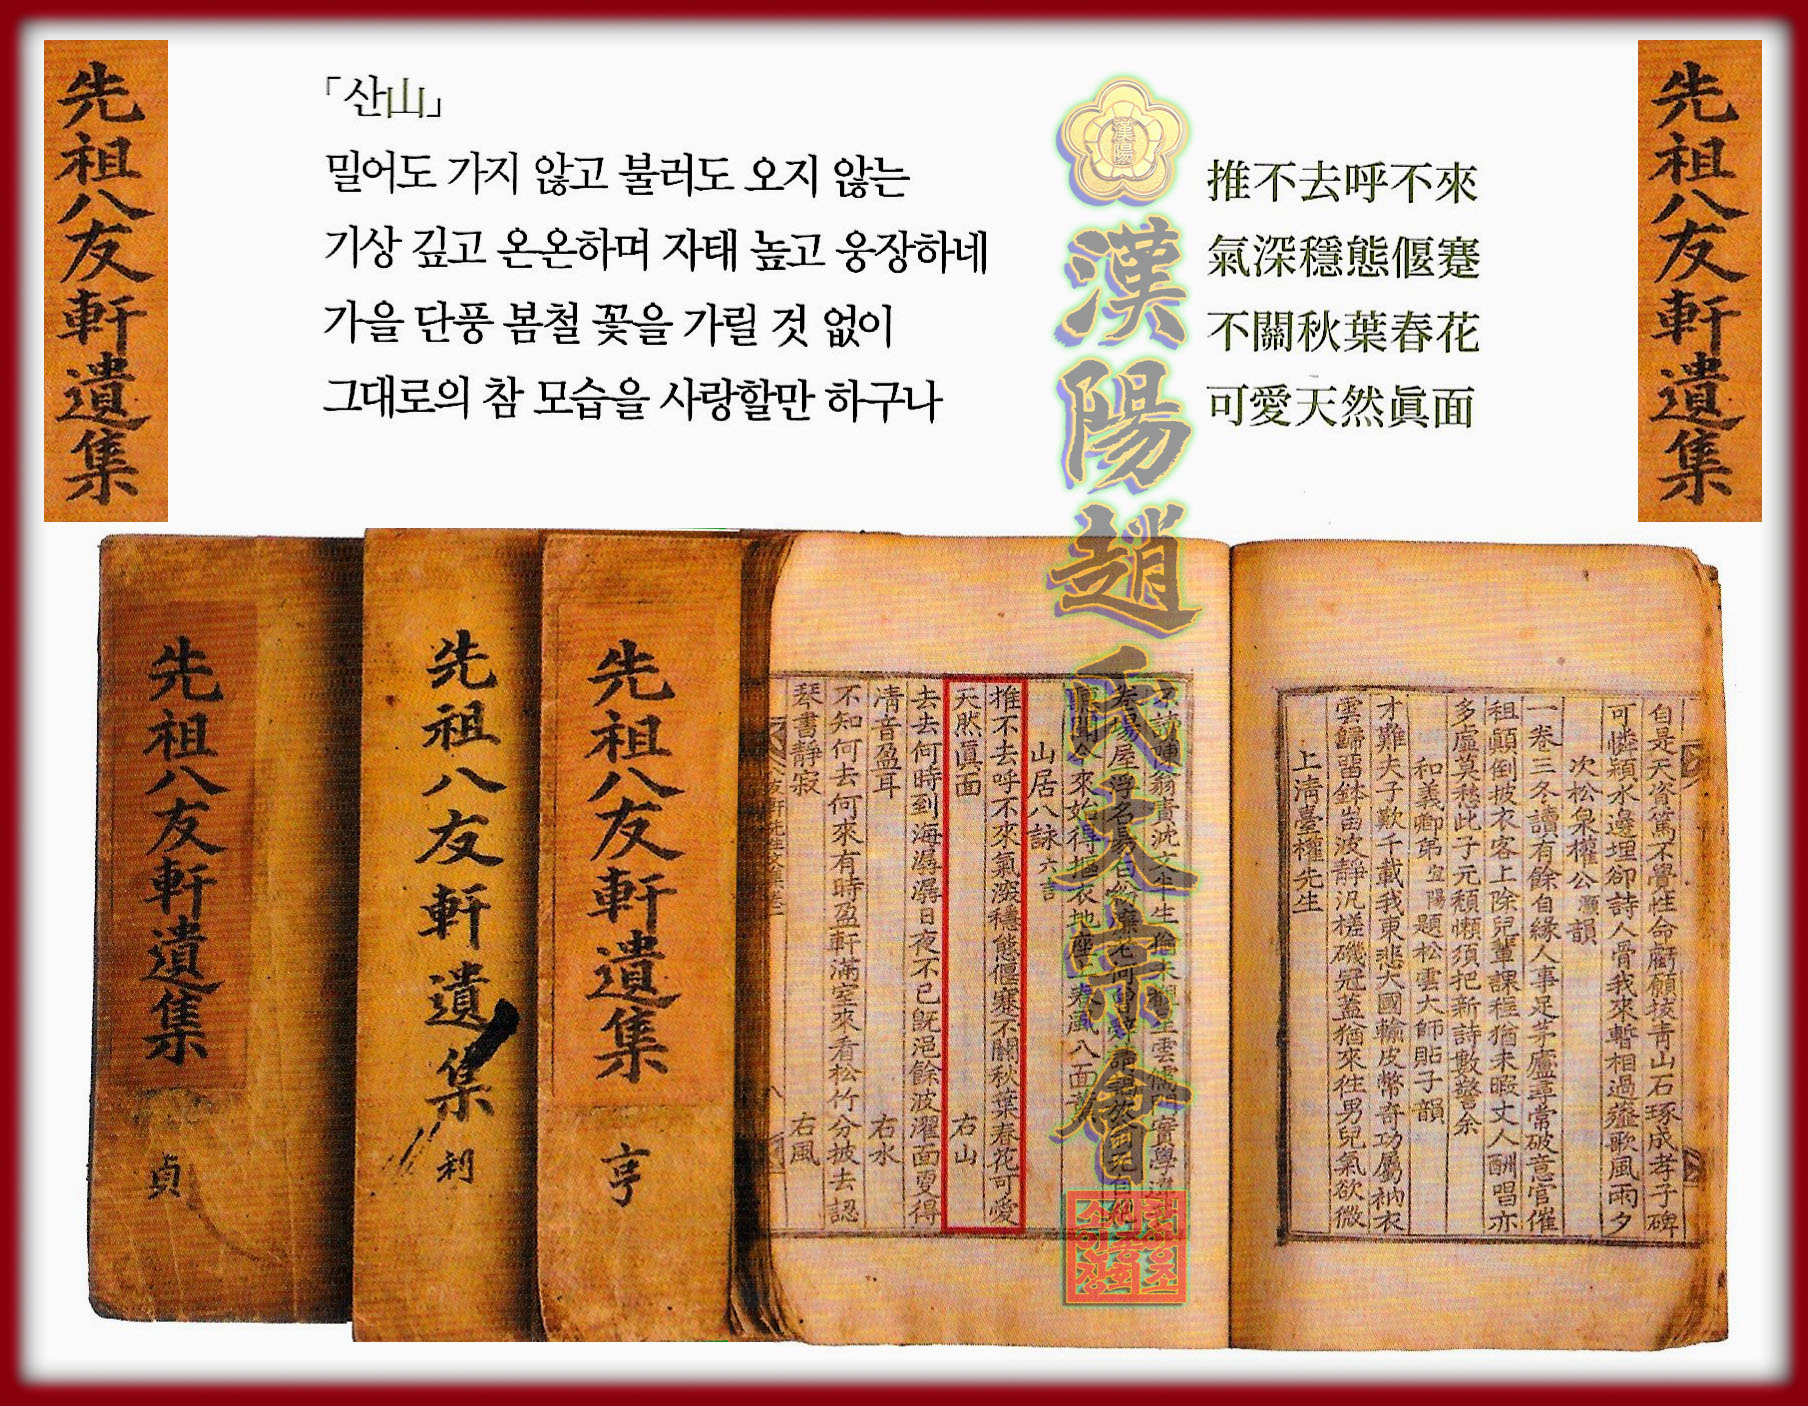 先祖八友軒遺集
「산山」
밀어도 가지 않고 불러도 오지 않는
기상 깊고 온온하며 자태 높고 웅장하네
가을 단풍 봄철 꽃을 가릴 것 없이
그대로의 참 모습을 사랑할만 하구나
漢陽
漢陽趙氏大宗會
推不去呼不來
氣深穩態偃蹇
不關秋葉春花
可愛天然眞面
先祖八友軒遺集
先祖八友軒遺集
貞
先祖八友軒遺集
利
先祖八友軒遺集
亨
自是天資篤不覺性命虧願拔靑山石琢成孝子碑
可憐潁水邊埋卻詩人骨我來暫相過薤歌風雨夕
次松泉權公灝韻
一卷三冬讀有餘自緣人事足茅廬尋常破意官催
租顚倒披衣客上除兒輩課程猶未暇丈人酬唱亦
多虛莫愁此子元頹懶須把新詩數警余
和義卿弟宜陽題松雲大師貼子韻
才難夫子歎千載我東悲大國輸皮幣奇功屬衲衣
雲歸留鉢笛波靜汎槎磯冠蓋猶來往男兒氣欲微
上淸臺權先生
山居八詠六言
推不去呼不來氣深穩態偃蹇不關秋葉春花可愛
天然眞面 右山
去去何時到海潺潺日夜不已旣浥餘波濯面更得
淸音盈耳 右水
不知何去何來有時盈軒滿室來看松竹分披去認
琴書靜寂 右風